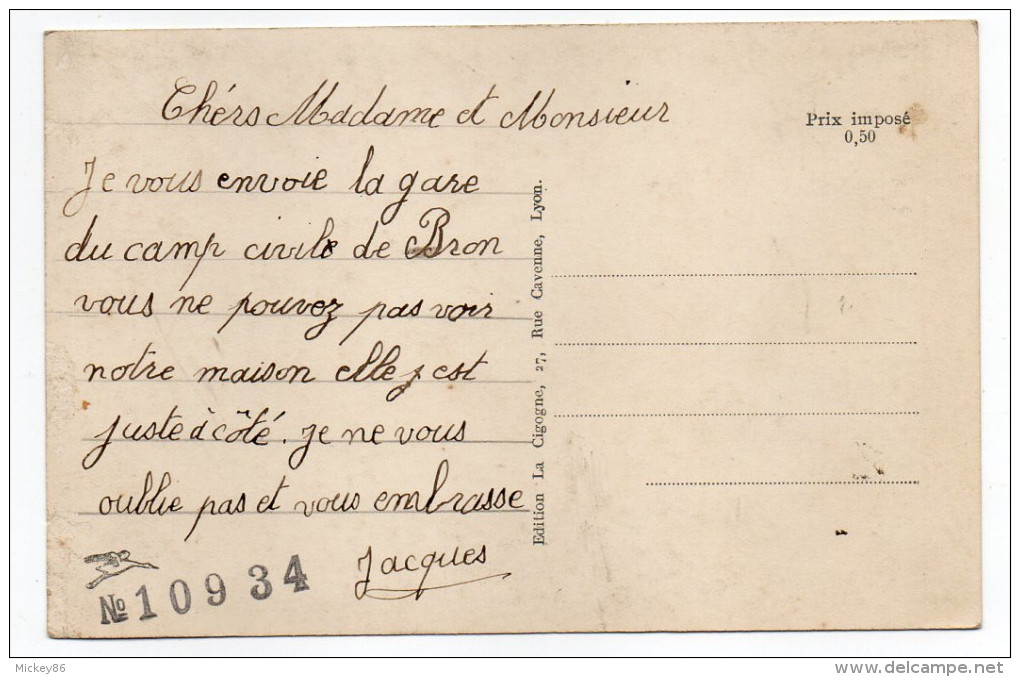 Chérs Madame et Monsieur
Je vous envoie la gare
du camp civile de Bron
vous ne pouvez pas voir
notre maison elle y est
juste à côté. je ne vous
oublie pas et vous embrasse
Jacques
No 10934
Edition La Cigogne, 27, Rue Cavenne, Lyon.
Prix imposé
0,50
Mickey86
www.delcampe.net